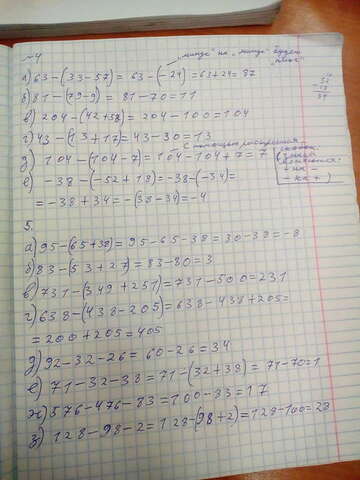 №4
„минус" на „минус" будет „плюс"
а) 63-(33-57) = 63-(-24) = 63+24 = 87
б) 81-(79-9) = 81-70=11
в) 204-(42+58) = 204-100=104
г) 43-(13+17)=43-30=13
д) 104-(104-7)=104-104+7=7
С помощью раскрытия скобок. (знаки меняются: + на - - на +)
е) -38-(-52+18)=-38-(-34)=
=-38+34=-(38-34)=-4
5.
а) 95-(65+38)=95-65-38=30-38=-8
б) 83-(53+27)=83-80=3
в) 731-(349+251)=731-500=231
г) 638-(438-205)=638-438+205=
=200+205=405
д) 92-32-26=60-26=34
е) 71-32-38=71-(32+38)=71-70=1
ж) 576-476-83=100-83=17
з) 128-98-2=128-(98+2)=128-100=28